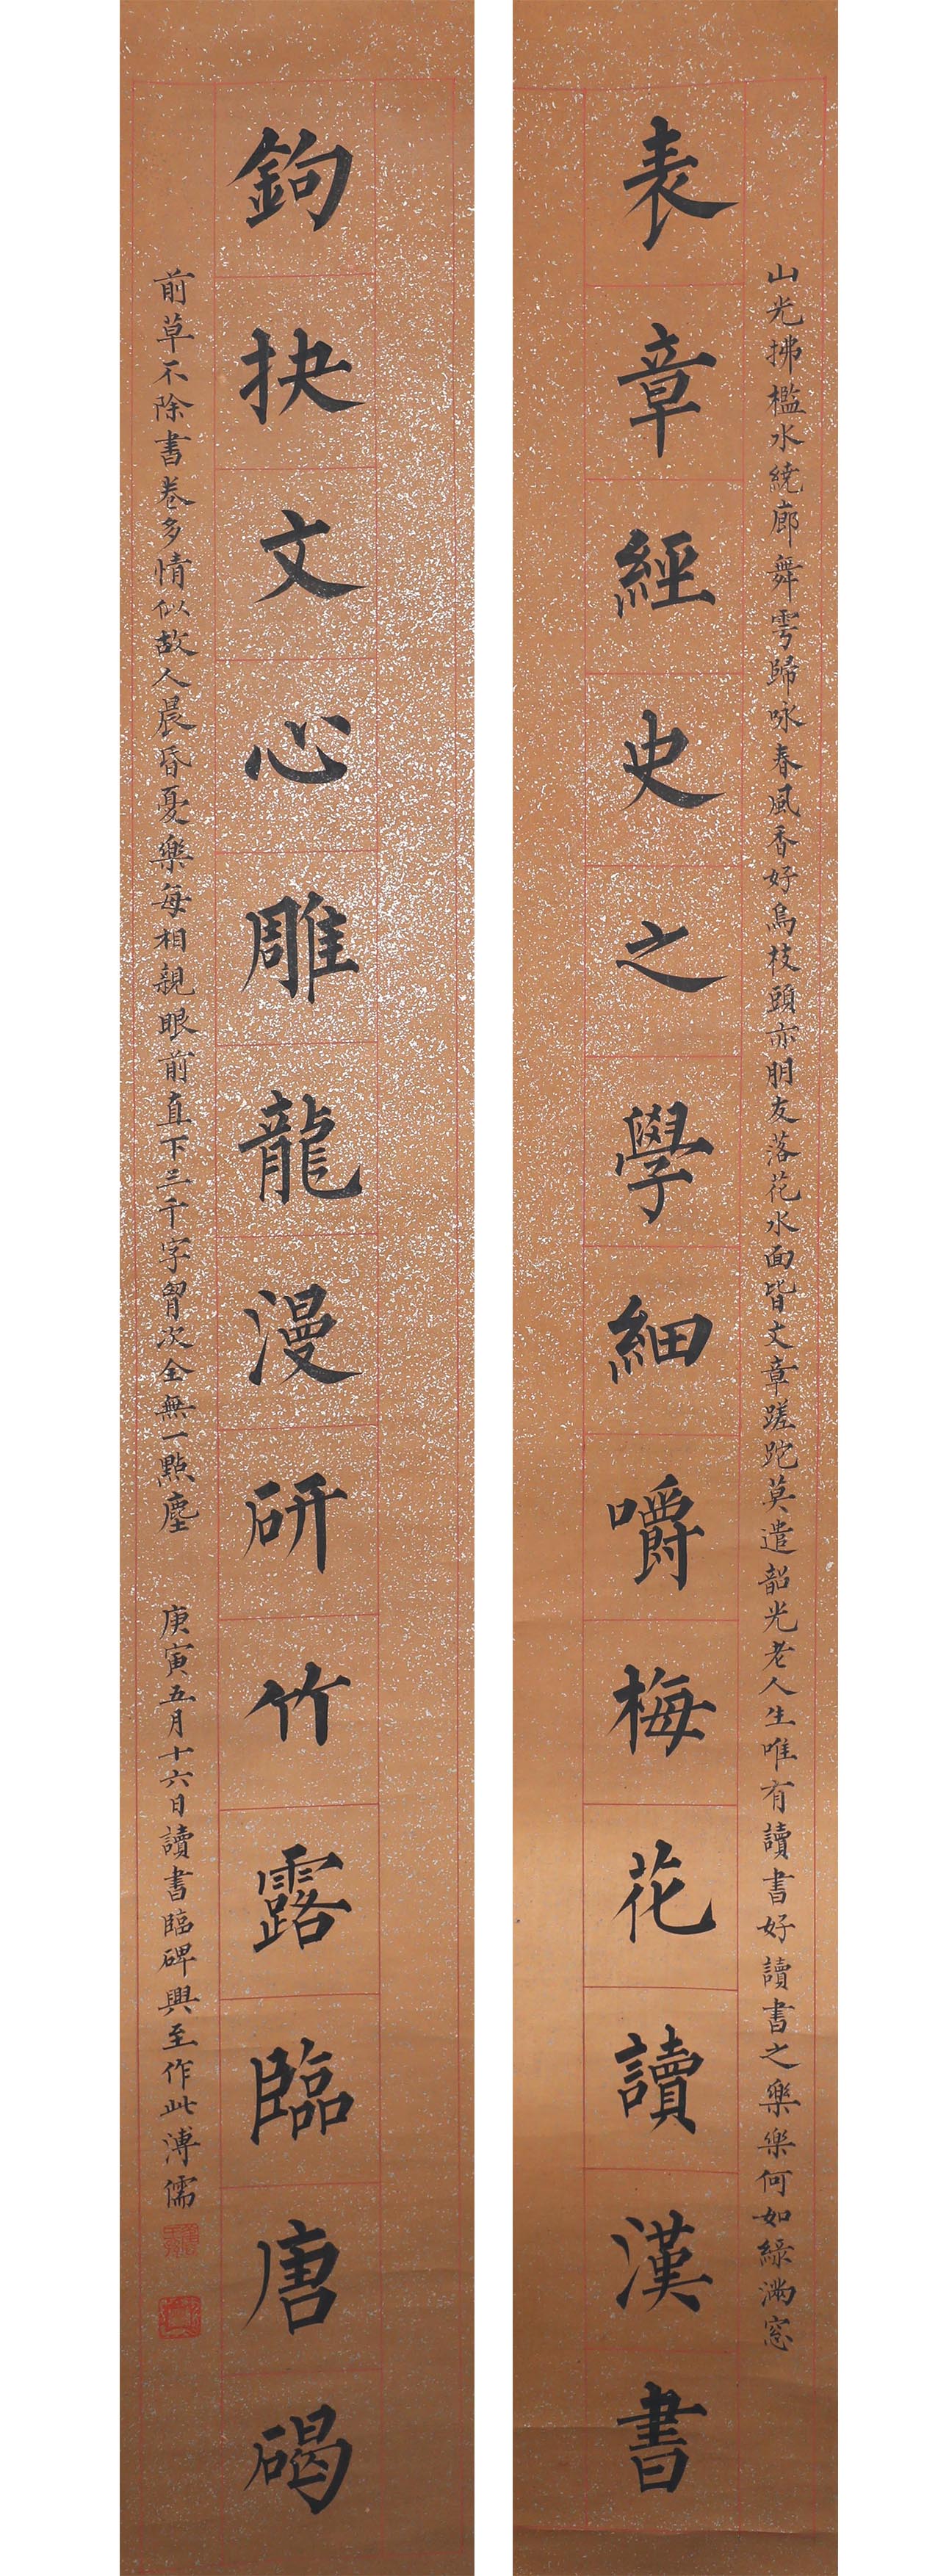 山光拂檻水繞廊舞雩歸咏春風香好鳥枝頭亦朋友落花水面皆文章蹉跎莫遣韶光老人生唯有讀書好讀書之樂樂何如綠滿窓
表章經史之學細嚼梅花讀漢書
鉤抉文心雕龍漫研竹露臨唐碣
前草不除書卷多情似故人晨昏憂樂每相親眼前直下三千字胷次全無一點塵
庚寅五月十六日讀書臨碑興至作此溥儒